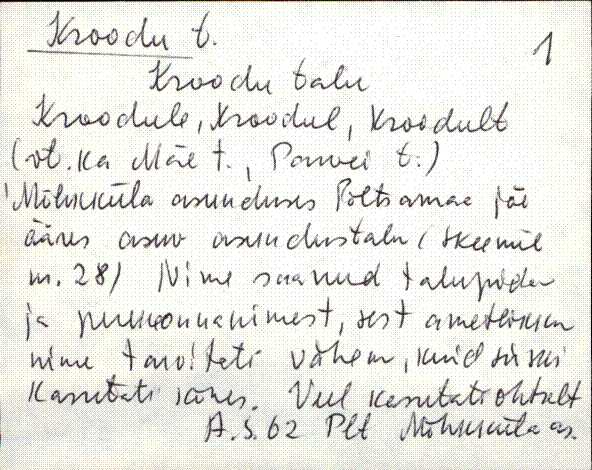 Kroodu t.
1
Kroodu talu
Kroodule, Kroodul, Kroodult
(vt. ka Mäe t., t.)
Mõhkküla asunduses Põltsamaa jõe
ääres asuv asundustalu (skeemil
nr. 28) Nime saanud talupidaja
ja perekonnanimest, sest ametlikku
nime tarvitati vähem, kuid siiski
kasutati ka. Veel kasutati ohtralt
A.S. 62 Plt Mõhkküla as.